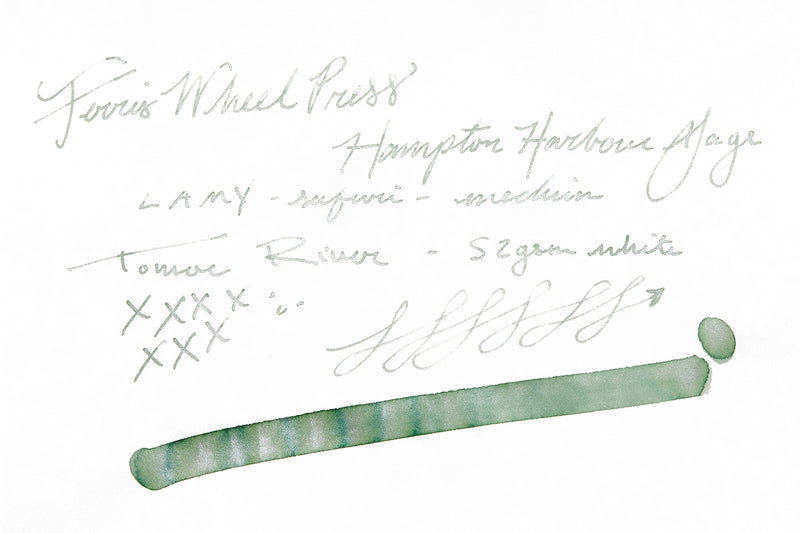 Ferris Wheel Press
Hampton Harbour Mage
LAMY - safari - medium
Tomoe River - 52gsm white
XXXX
XXX